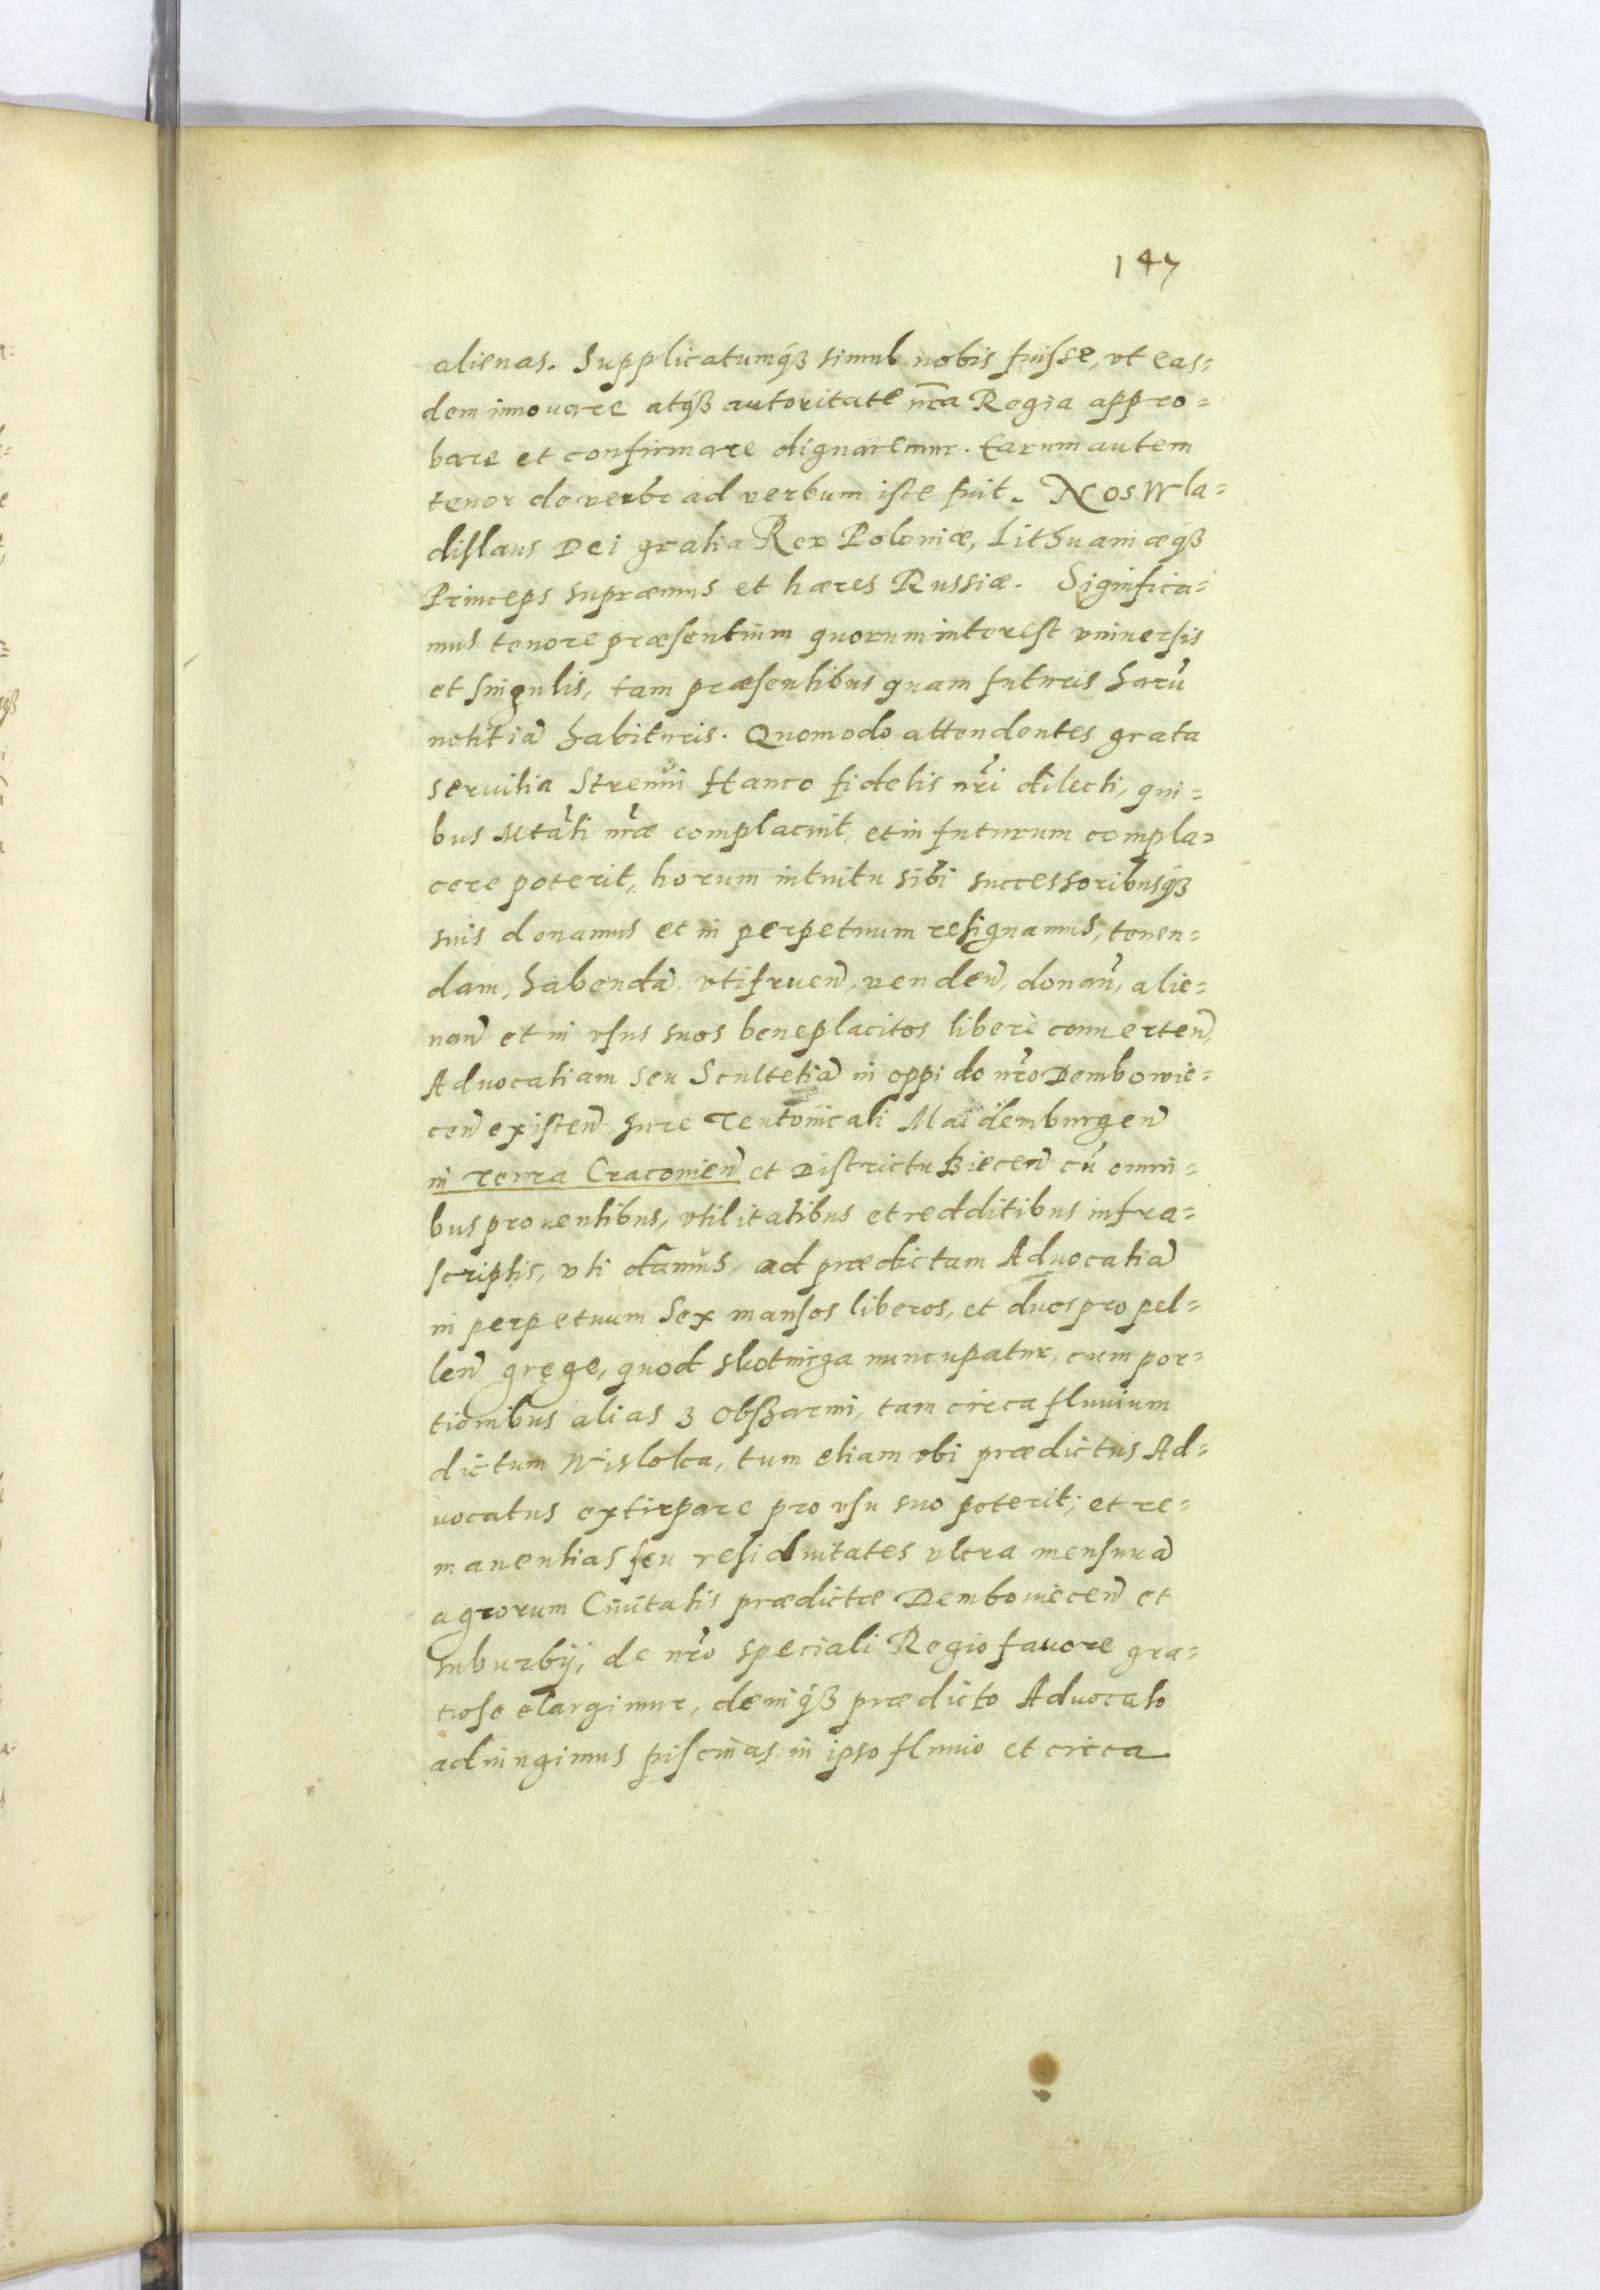 147
alienas. Supplicatumqꝫ simul nobis fuisse, vt eas=
dem innouare atqꝫ autoritate nr̃a Regia appro=
bare et confirmare dignaremur. Earum autem
tenor de verbo ad verbum iste fuit. Nos Wla=
dislaus Dei gratia Rex Poloniæ, Lithuaniæqꝫ
Princeps supræmus et hæres Russiæ. Significa=
mus tenore præsentium quorum interest vniuersis
et singulis, tam præsentibus quam futuris harũ
notitiã habituris. Quomodo attendentes grata
seruitia Strenui Hanco fidelis nr̃i dilecti, qui=
bus Mtãti nr̃æ complacuit, et in futurum compla=
cere poterit, horum intuitu sibi successoribusqꝫ
suis donamus et in perpetuum resignamus, tenen=
dam, habendã, vtifruen̄, venden̄, donan̄, alie=
nan̄ et in vsus suos beneplacitos liberè conuerten̄,
Aduocatiam seu Scultetiã in oppido nr̃o Dembowie=
cen̄ existen̄ Jure Teutonicali Maidemburgen̄
in Terra Cracouien̄ et Districtu Biecen̄ cũ omni=
bus prouentibus, vtilitatibus et redditibus infra=
scriptis, vti damus, ad prædictam Aduocatiã
in perpetuum Sex mansos liberos, et duos pro pel=
len̄ gręge, quod skotnicza nuncupatur, cum por=
tionibus alias z Obszarmi, tam circa fluuium
dictum Wisloka, tum etiam vbi prædictus Ad=
uocatus extirpare pro vsu suo poterit; et re=
manentias seu residuitates vltra mensurã
agrorum Ciuitatis prædictæ Dembowiecen̄ et
suburbij, de nr̃o speciali Regio fauore gra=
tiose elargimur, deniqꝫ prædicto Aduocato
adiungimus piscinas in ipso fluuio et circa